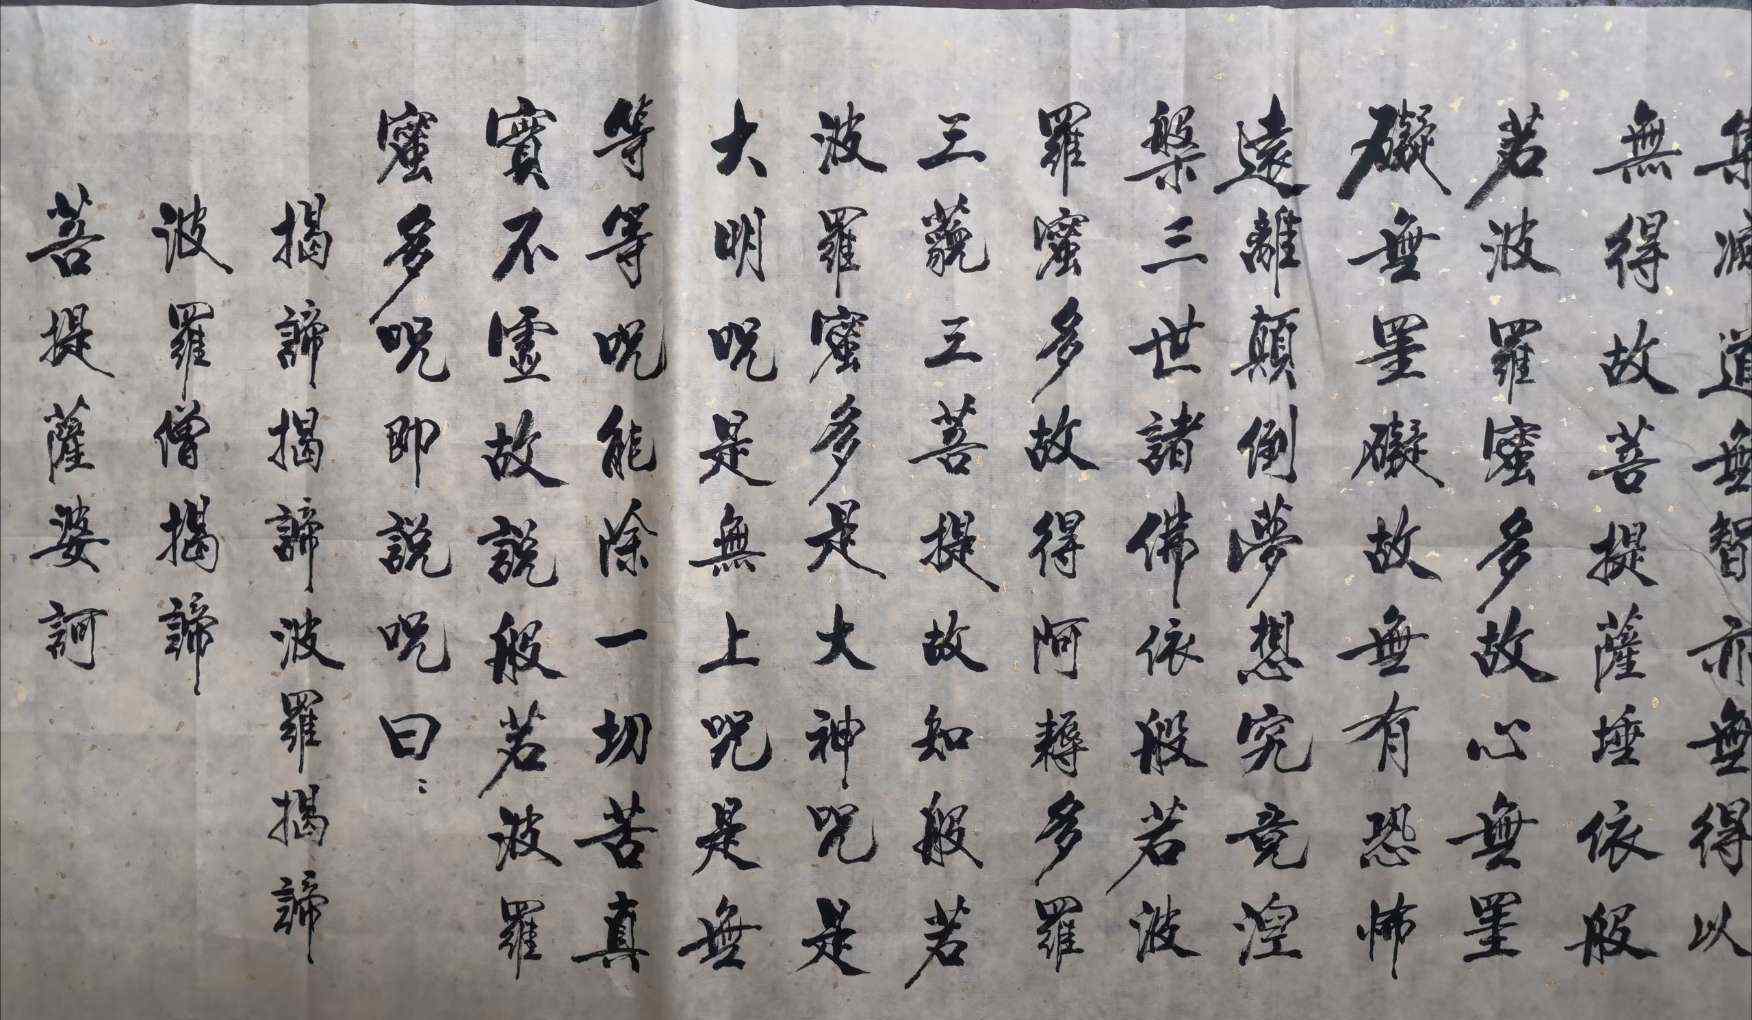 集滅道無智亦無得以
無得故菩提薩埵依般
若波羅蜜多故心無罣
礙無罣礙故無有恐怖
遠離顛倒夢想究竟涅
槃三世諸佛依般若波
羅蜜多故得阿耨多羅
三藐三菩提故知般若
波羅蜜多是大神呪是
大明呪是無上呪是無
等等呪能除一切苦真
實不虛故說般若波羅
蜜多呪即說呪曰：
揭諦揭諦波羅揭諦
波羅僧揭諦
菩提薩婆訶